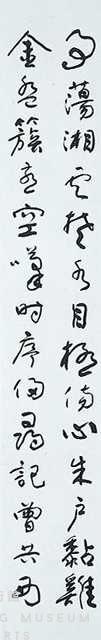 事蕩湘雲楚水目極傷心朱戶黏雞
金盤簇燕空嘆時序侵尋記曾共西
MUSEUM
ARTS